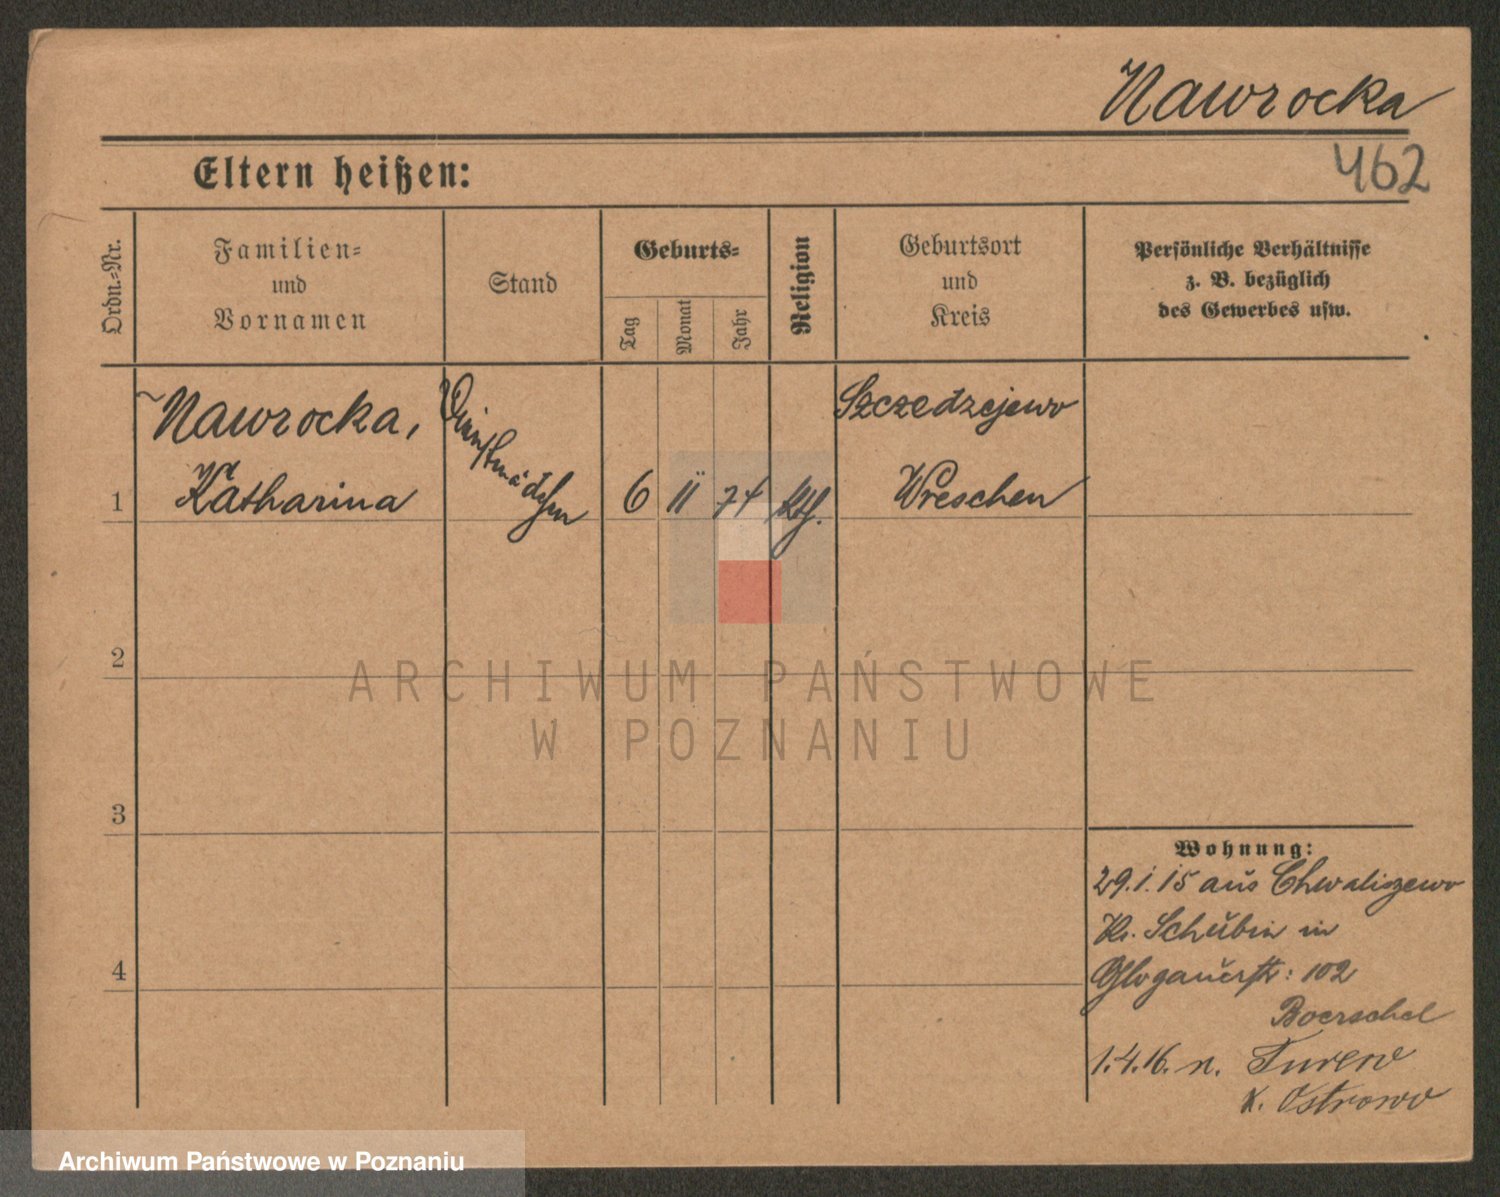 Nawrocka
Eltern heißen:
462
Ordn.-Nr.
Familien-
und
Vornamen
Stand
Geburts-
Tag
Monat
Jahr
Religion
Geburtsort
und
Kreis
Persönliche Verhältnisse
z. B. bezüglich
des Gewerbes usw.
Nawrocka,
Katharina
Dienstmädchen
Szczedzejewo
Wreschen
1
6
11
74
kth.
2
3
4
Wohnung:
29.1.15 aus Chwaliszewo
Kr. Schubin in
Glogauerstr: 102
Boerschel
1.4.16. n. Turew
K. Ostrowo
ARCHIWUM PAŃSTWOWE
W POZNANIU
Archiwum Państwowe w Poznaniu